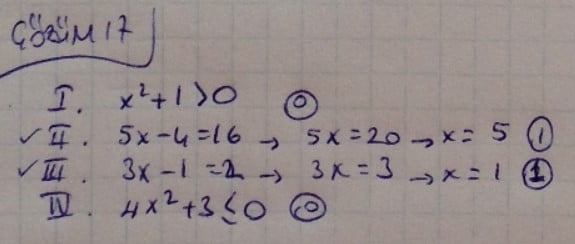 ÇÖZÜM 17
I. x²+1>0 ⓪
✓ II. 5x-4=16 → 5x=20 → x= 5 ①
✓ III. 3x-1=2 → 3x=3 → x=1 ①
IV. 4x²+3≤0 ⓪